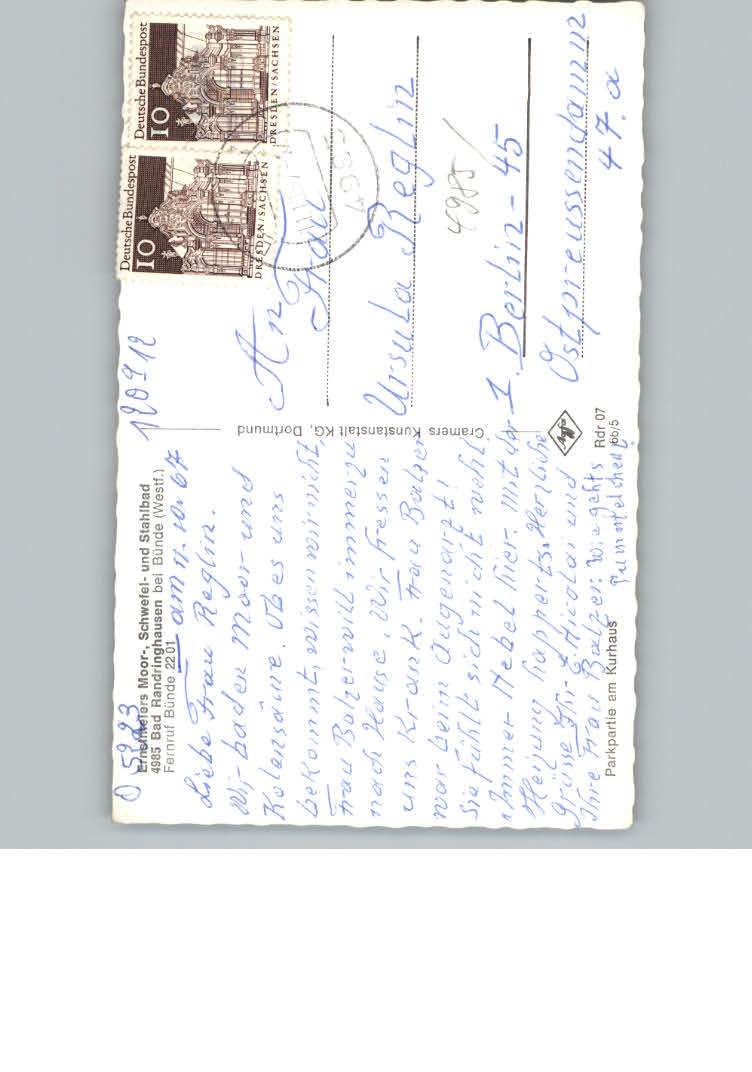 O 5993
Ernstmeiers Moor-, Schwefel- und Stahlbad
4985 Bad Randringhausen bei Bünde (Westf.)
Fernruf Bünde 22 01
am 11.10.67
Liebe Frau Reglin.
Wir baden Moor und
Kolensäure. Ob es uns
bekommt, wissen wir nicht
Frau Balzer will immerzu
nach Hause. Wir fressen
uns Krank. Frau Balzer
war beim Augenarzt!
Sie fühlt sich nicht wohl
Immer Nebel hier. Mit der
Heizung happerts. Herzliche
Grüsse Ihr E. Nicolai und
Ihre Frau Balzer. Wie gehts
Pummelchen?
Parkpartie am Kurhaus
Cramers Kunstanstalt KG, Dortmund
Agfa
Rdr 07
66/5
120912
Deutsche Bundespost
10
DRESDEN/SACHSEN
Deutsche Bundespost
10
DRESDEN/SACHSEN
An
Frau
Ursula Reglin
4985/
1. Berlin-45
Ostpreussendamm
47. a